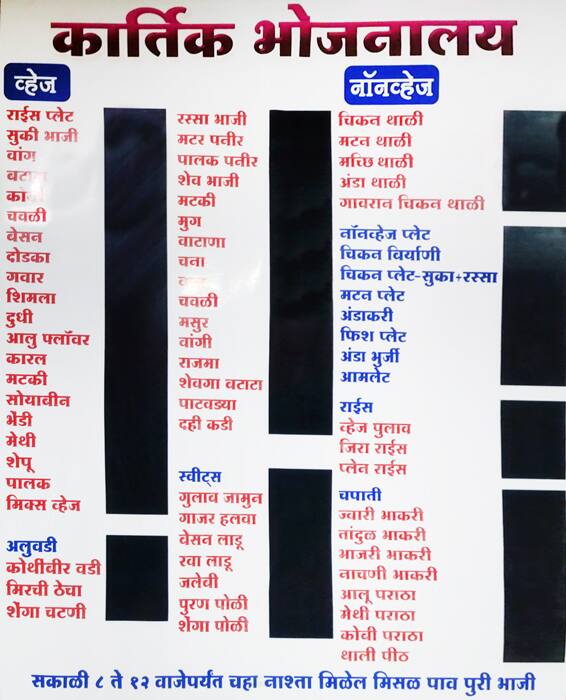 कार्तिक भोजनालय
व्हेज
राईस प्लेट
सुकी भाजी
वांग
चवळी
बेसन
दोडका
गवार
शिमला
दुधी
आलु फ्लॉवर
कारल
मटकी
सोयाबीन
भेंडी
मेथी
शेपू
पालक
मिक्स व्हेज
अलुवडी
कोथींबीर वडी
मिरची ठेचा
शेंगा चटणी
रस्सा भाजी
मटर पनीर
पालक पनीर
शेव भाजी
मटकी
मुग
वाटाणा
चना
चवळी
मसुर
वांगी
राजमा
शेवगा बटाटा
पाटवड्या
दही कडी
स्वीट्स
गुलाब जामुन
गाजर हलवा
बेसन लाडू
रवा लाडू
जलेबी
पुरण पोळी
शेंगा पोळी
नॉनव्हेज
चिकन थाळी
मटन थाळी
मच्छि थाळी
अंडा थाळी
गावरान चिकन थाळी
नॉनव्हेज प्लेट
चिकन बिर्याणी
चिकन प्लेट-सुका+रस्सा
मटन प्लेट
अंडाकरी
फिश प्लेट
अंडा भुर्जी
आमलेट
राईस
व्हेज पुलाव
जिरा राईस
प्लेन राईस
चपाती
ज्वारी भाकरी
तांदुळ भाकरी
बाजरी भाकरी
नाचणी भाकरी
आलू पराठा
मेथी पराठा
कोबी पराठा
थाली पीठ
सकाळी ८ ते १२ वाजेपर्यंत चहा नाश्ता मिळेल मिसळ पाव पुरी भाजी